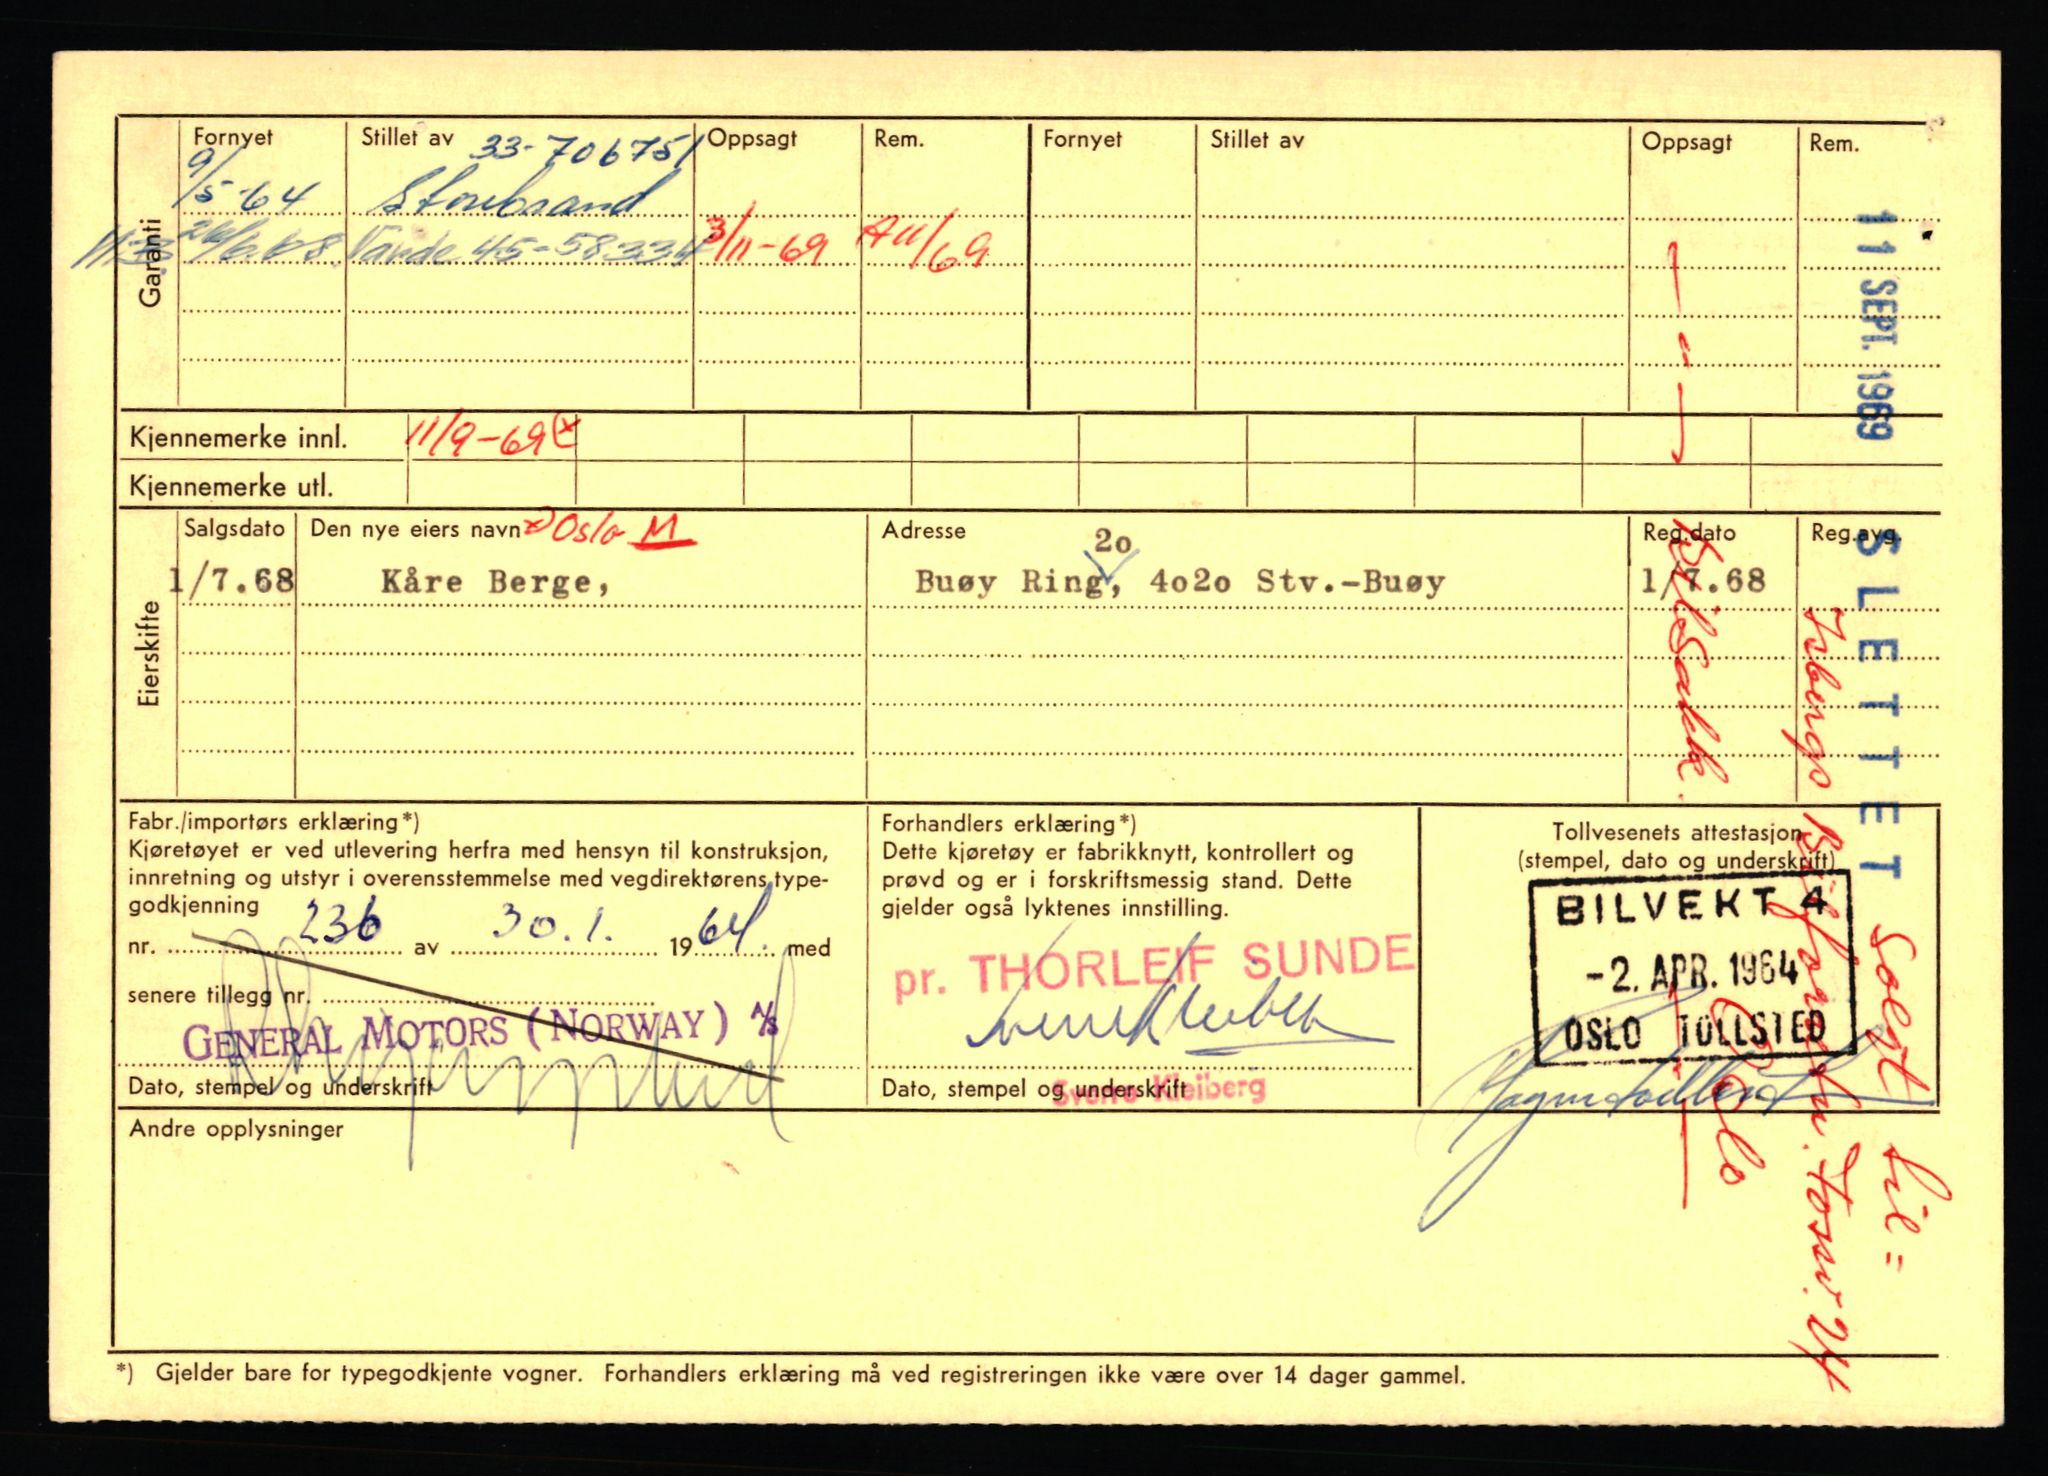 Garanti
Fornyet Stillet av Oppsagt Rem. Fornyet Stillet av Oppsagt Rem.
9/5-64 33-706751
Storebrand
26/6.68. 45-58334 3/11-69 /69
Kjennemerke innl. 11/9-69 x
Kjennemerke utl.
Eierskifte
Salgsdato Den nye eiers navn x) Oslo M Adresse Reg.dato Reg.avg.
1/7.68 Kåre Berge, Buøy Ring 20, 4020 Stv.-Buøy 1/7.68
Fabr./importørs erklæring*)
Kjøretøyet er ved utlevering herfra med hensyn til konstruksjon,
innretning og utstyr i overensstemmelse med vegdirektørens type-
godkjenning
nr. 236 av 30.1. 1964. med
senere tillegg nr.
GENERAL MOTORS (NORWAY) A/S
Dato, stempel og underskrift
Forhandlers erklæring*)
Dette kjøretøy er fabrikknytt, kontrollert og
prøvd og er i forskriftsmessig stand. Dette
gjelder også lyktenes innstilling.
pr. THORLEIF SUNDE
Dato, stempel og underskrift
Sverre Kleiberg
Tollvesenets attestasjon
(stempel, dato og underskrift)
BILVEKT 4
-2. APR. 1964
OSLO TOLLSTED
Andre opplysninger
*) Gjelder bare for typegodkjente vogner. Forhandlers erklæring må ved registreringen ikke være over 14 dager gammel.
11 SEPT. 1969
SLETTET
Solgt til =
Oslo